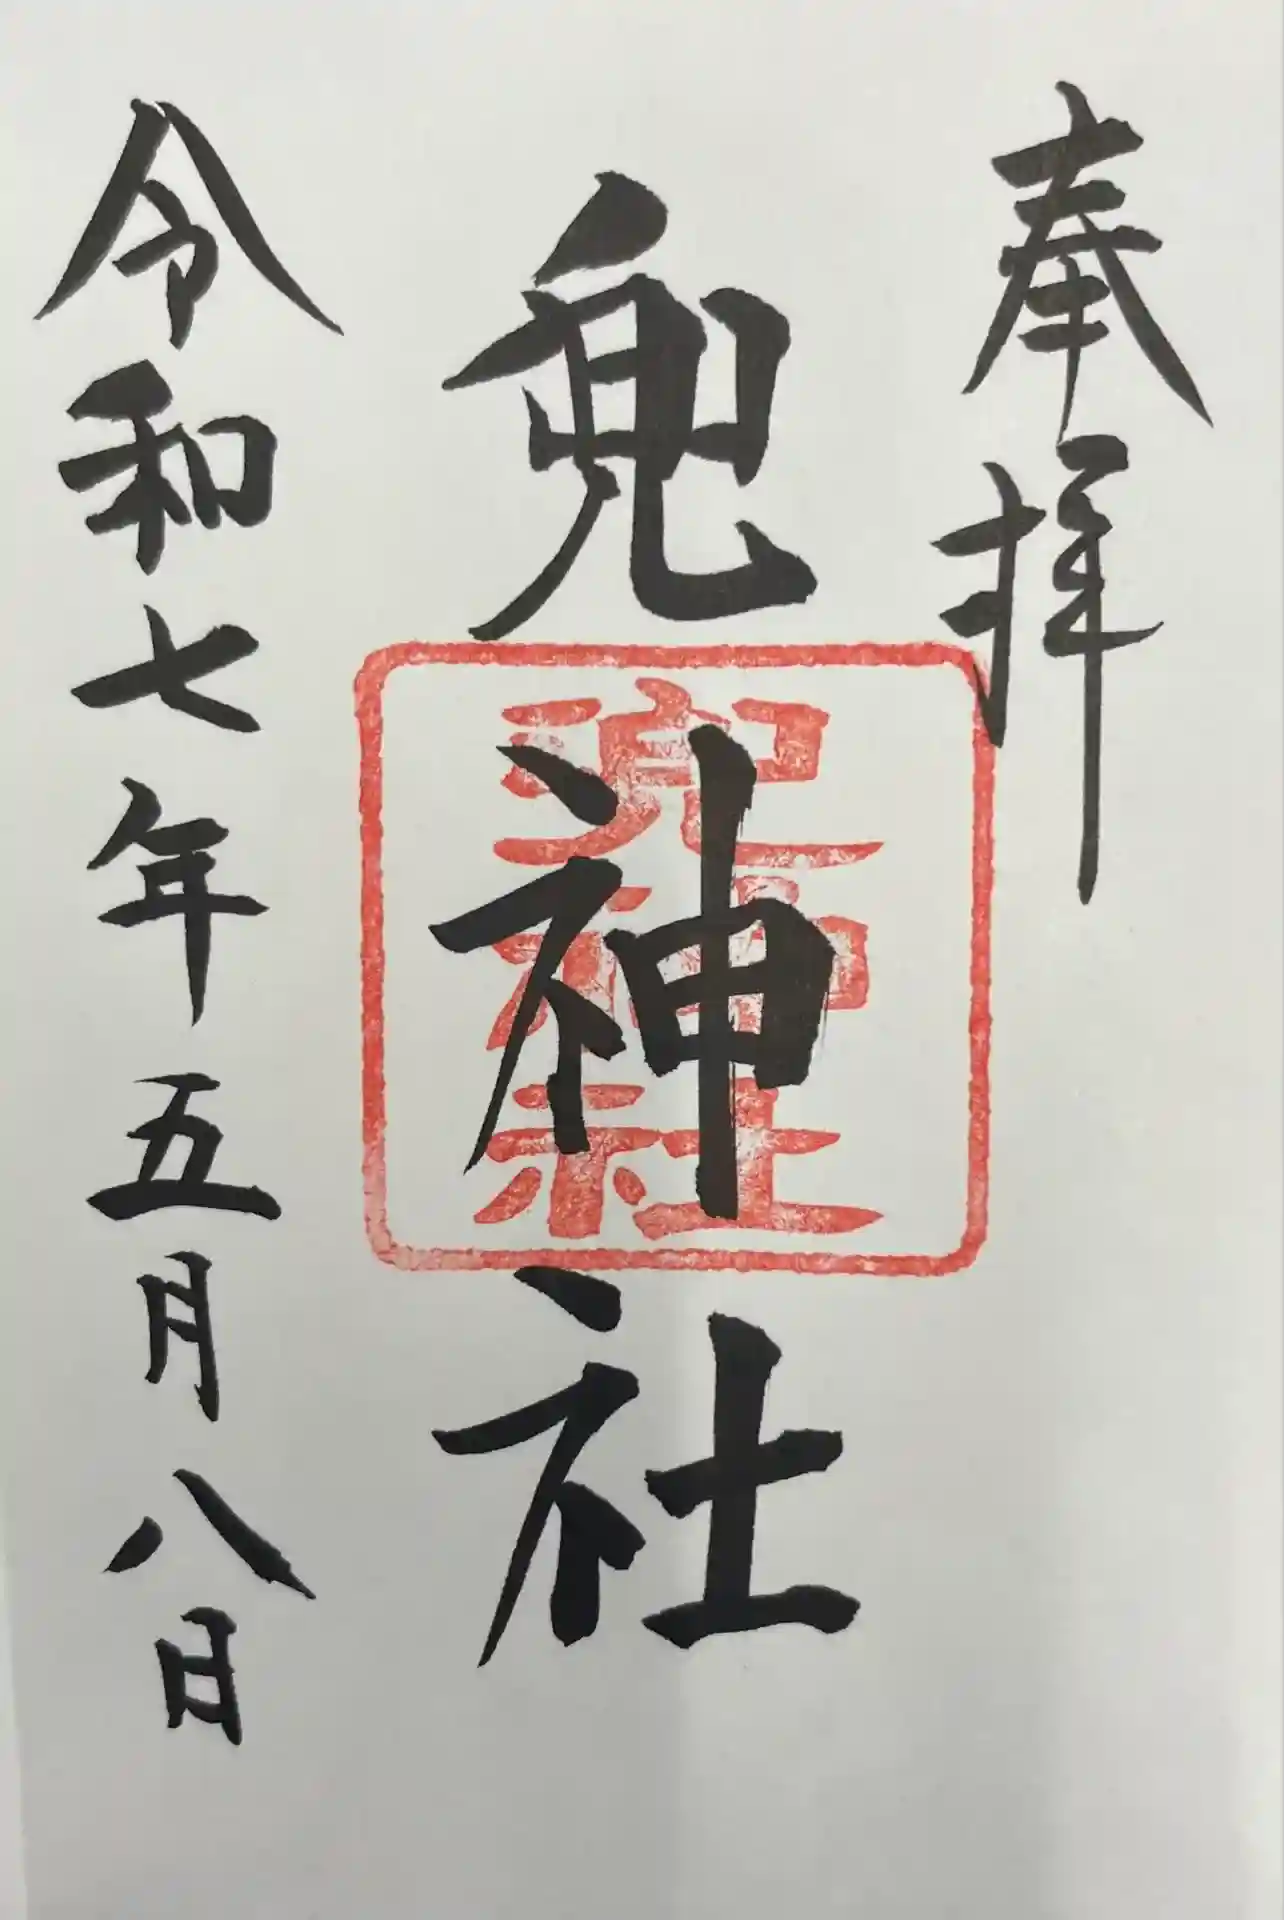 奉拝
兜神社
兜神社
令和七年五月八日